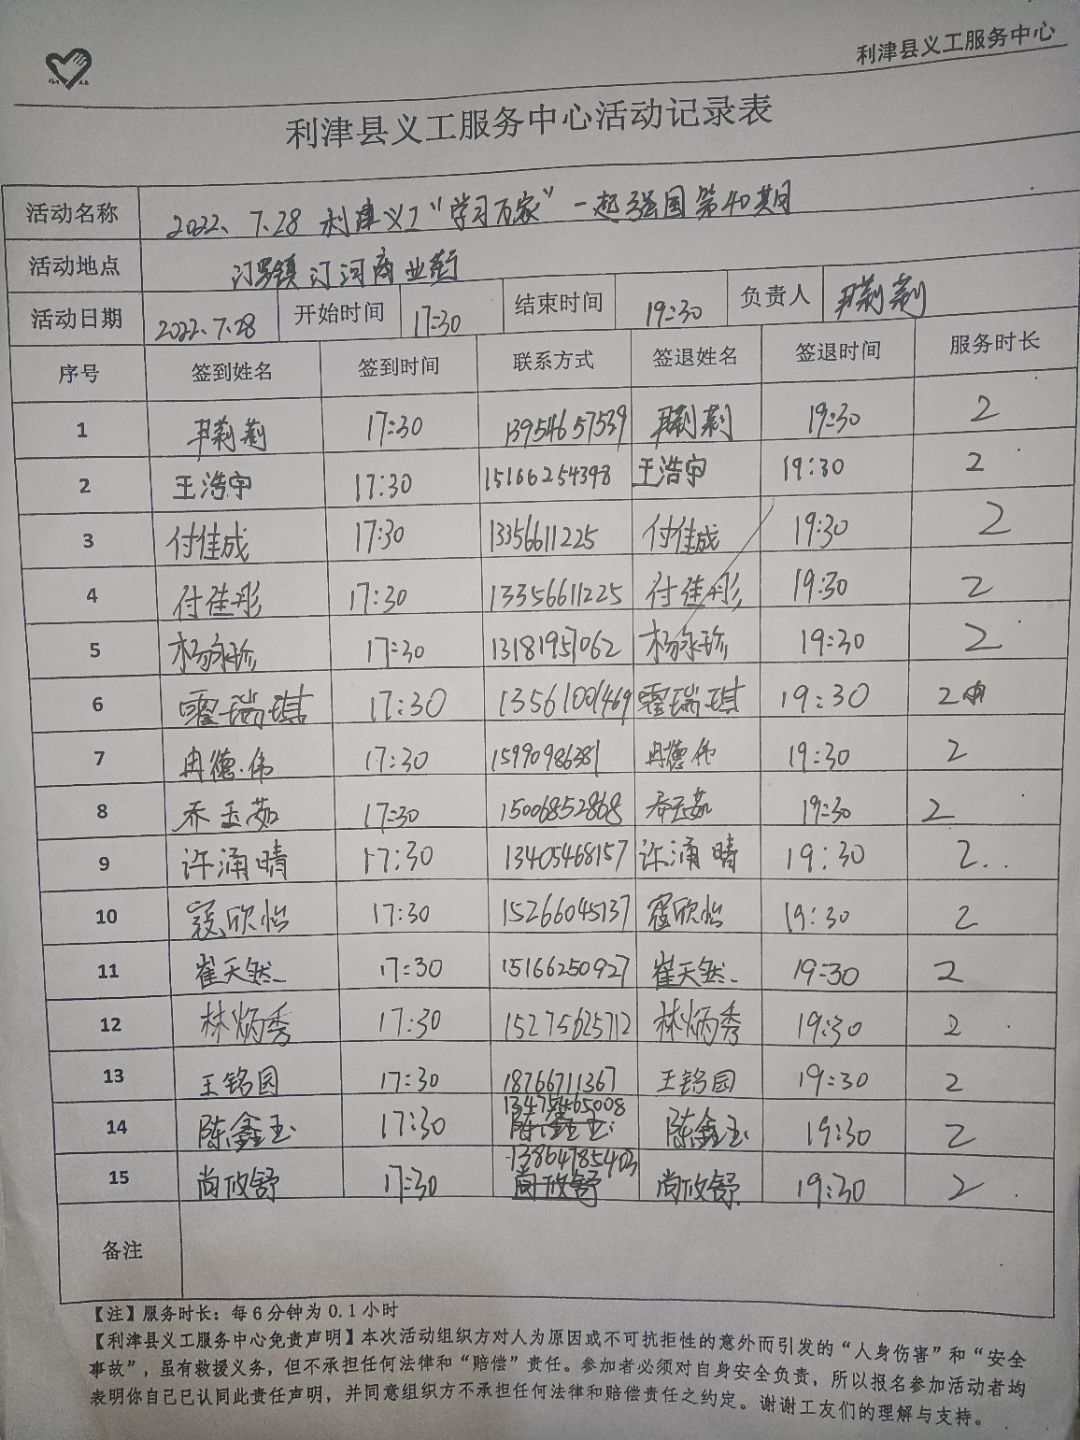 利津县义工服务中心
利津县义工服务中心活动记录表
活动名称 2022、7.28 利津义工“学习万家”一起强国第40期
活动地点 汀罗镇汀河商业街
活动日期 2022、7.28 开始时间 17:30 结束时间 19:30 负责人
序号 签到姓名 签到时间 联系方式 签退姓名 签退时间 服务时长
1 17:30 13954657539 19:30 2
2 王浩宇 17:30 15166254398 王浩宇 19:30 2
3 付佳成 17:30 13356611225 付佳成 19:30 2
4 付佳彤 17:30 13356611225 付佳彤 19:30 2
5 杨永珍 17:30 13181957062 杨永珍 19:30 2
6 霍瑞琪 17:30 13561001469 霍瑞琪 19:30 2
7 冉德伟 17:30 15990986381 冉德伟 19:30 2
8 乔玉茹 17:30 15006852868 乔玉茹 19:30 2
9 许涌晴 17:30 13405468157 许涌晴 19:30 2
10 寇欣怡 17:30 15266045137 寇欣怡 19:30 2
11 崔天然 17:30 15166250927 崔天然 19:30 2
12 林炳秀 17:30 15275625712 林炳秀 19:30 2
13 王铭园 17:30 18766711367 王铭园 19:30 2
14 陈鑫玉 17:30 13475465008 陈鑫玉 陈鑫玉 19:30 2
15 尚攸舒 17:30 13864785403 尚攸舒 尚攸舒 19:30 2
备注
【注】服务时长：每6分钟为0.1小时
【利津县义工服务中心免责声明】本次活动组织方对人为原因或不可抗拒性的意外而引发的“人身伤害”和“安全
事故”，虽有救援义务，但不承担任何法律和“赔偿”责任。参加者必须对自身安全负责，所以报名参加活动者均
表明你自己已认同此责任声明，并同意组织方不承担任何法律和赔偿责任之约定。谢谢工友们的理解与支持。